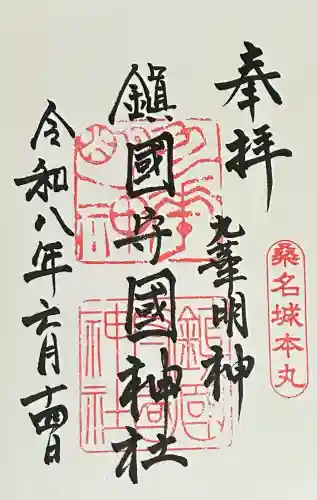 奉拝
桑名城本丸
九華明神
鎮國守國神社
令和八年六月十四日